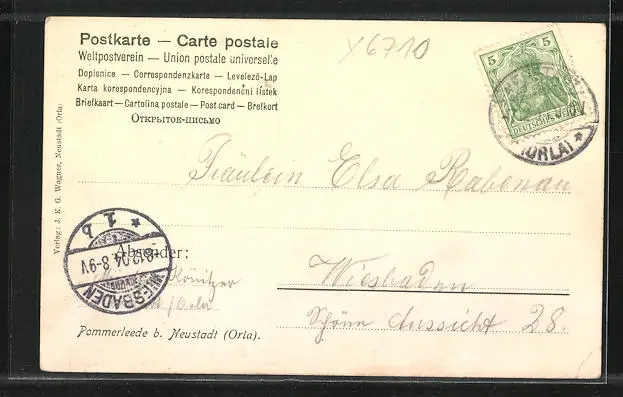 Postkarte — Carte postale
Weltpostverein — Union postale universelle
Dopisnice — Correspondenzkarte — Levelező-Lap
Karta korespondencyjna — Korespondenční lístek
Briefkaart — Cartolina postale — Post card — Brefkort
Открытое-письмо
X6710
5 5
DEUTSCHES REICH
(ORLA) *
Verlag: J. K. G. Wagner, Neustadt (Orla)
Fräulein Elsa Rabenau
* 1. b
12.04. 8-9V
WIESBADEN
Absender:
Könitzer
/Orla
Wiesbaden
Schöne Aussicht 28.
Pommerleede b. Neustadt (Orla).